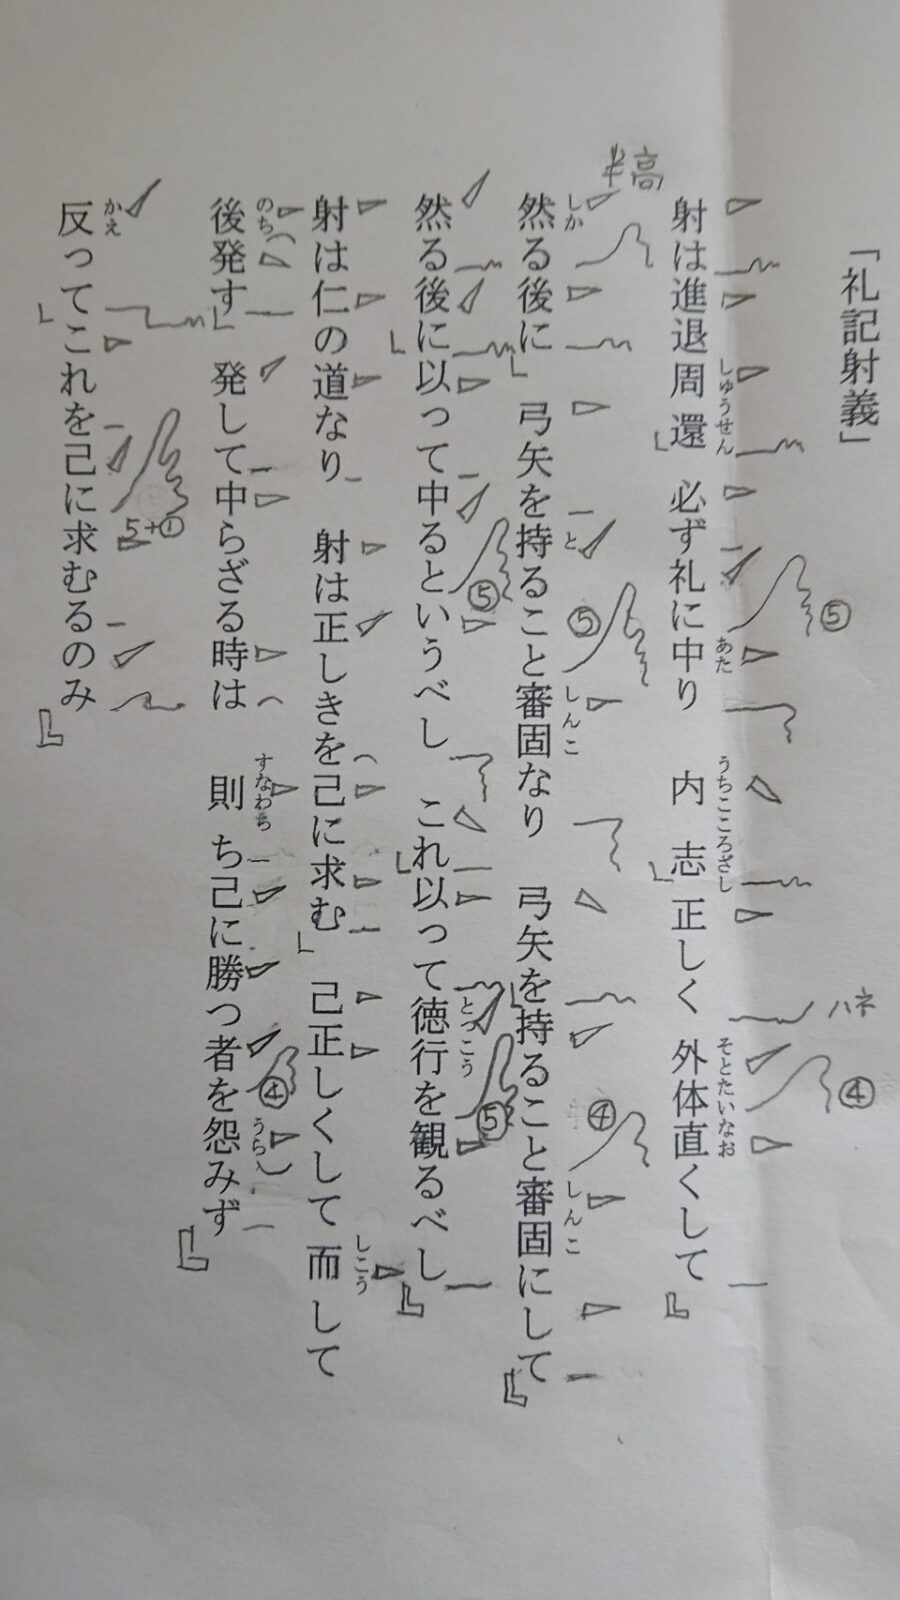 「礼記射義」
射は進退周還　必ず礼に中り　内志正しく　外体直くして
然る後に　弓矢を持ること審固なり　弓矢を持ること審固にして
然る後に以って中るというべし　これ以って徳行を観るべし
射は仁の道なり　射は正しきを己に求む　己正しくして而して
後発す　発して中らざる時は　則ち己に勝つ者を怨みず
反ってこれを己に求むるのみ
しゅうせん
あた
うちこころざし
そとたいなお
しか
と
しんこ
しんこ
とっこう
しこう
のち
すなわち
うら
かえ
半高
⑤
④
ハネ
⑤
④
⑤
⑤
④
5+①